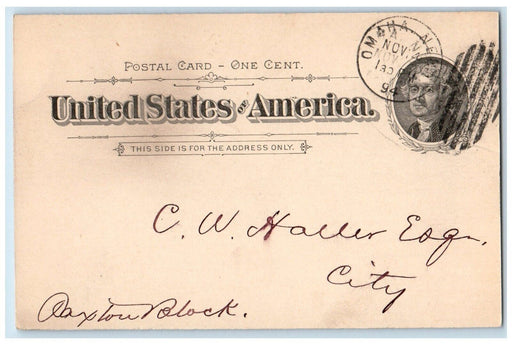 POSTAL CARD - ONE CENT.
United States of America.
THIS SIDE IS FOR THE ADDRESS ONLY.
OMAHA, NE
NOV 2
130
94
C. W. Haller Esqr.
City
Paxton Block.